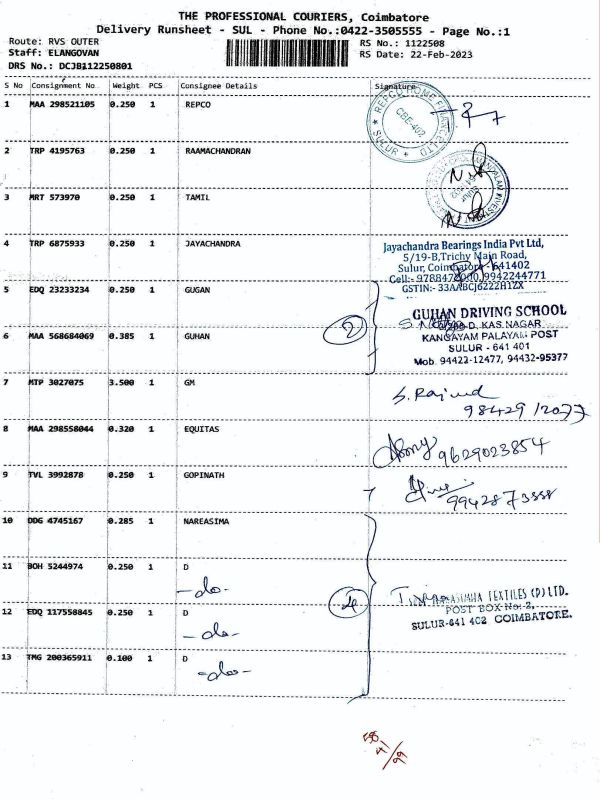 THE PROFESSIONAL COURIERS, Coimbatore
Delivery Runsheet - SUL - Phone No.:0422-3505555 - Page No.:1
Route: RVS OUTER
Staff: ELANGOVAN
DRS No.: DCJB112250801
RS No.: 1122508
RS Date: 22-Feb-2023
S No Consignment No Weight PCS Consignee Details Signature
1 MAA 298521105 0.250 1 REPCO
REPCO HOME FINANCE LTD
CBE-402
SULUR
2 TRP 4195763 0.250 1 RAAMACHANDRAN
3 MRT 573970 0.250 1 TAMIL
4 TRP 6875933 0.250 1 JAYACHANDRA
Jayachandra Bearings India Pvt Ltd,
5/19-B,Trichy Main Road,
Sulur, Coimbatore - 641402
GSTIN:- 33AABCJ6222H1ZX
5 EDQ 23233234 0.250 1 GUGAN
GUHAN DRIVING SCHOOL
KAS NAGAR
KANGAYAM PALAYAM POST
SULUR - 641 401
Mob. 94422-12477, 94432-95377
2
6 MAA 568684069 0.385 1 GUHAN
7 MTP 3027075 3.500 1 GM
8 MAA 298558044 0.320 1 EQUITAS
9629023854
9 TVL 3992878 0.250 1 GOPINATH
10 DDG 4745167 0.285 1 NAREASIMA
11 BOH 5244974 0.250 1 D
-do-
4
TEXTILES (P) LTD.
POST BOX No: 2,
SULUR-641 402 COIMBATORE.
12 EDQ 117558845 0.250 1 D
-do-
13 TMG 200365911 0.100 1 D
-do-